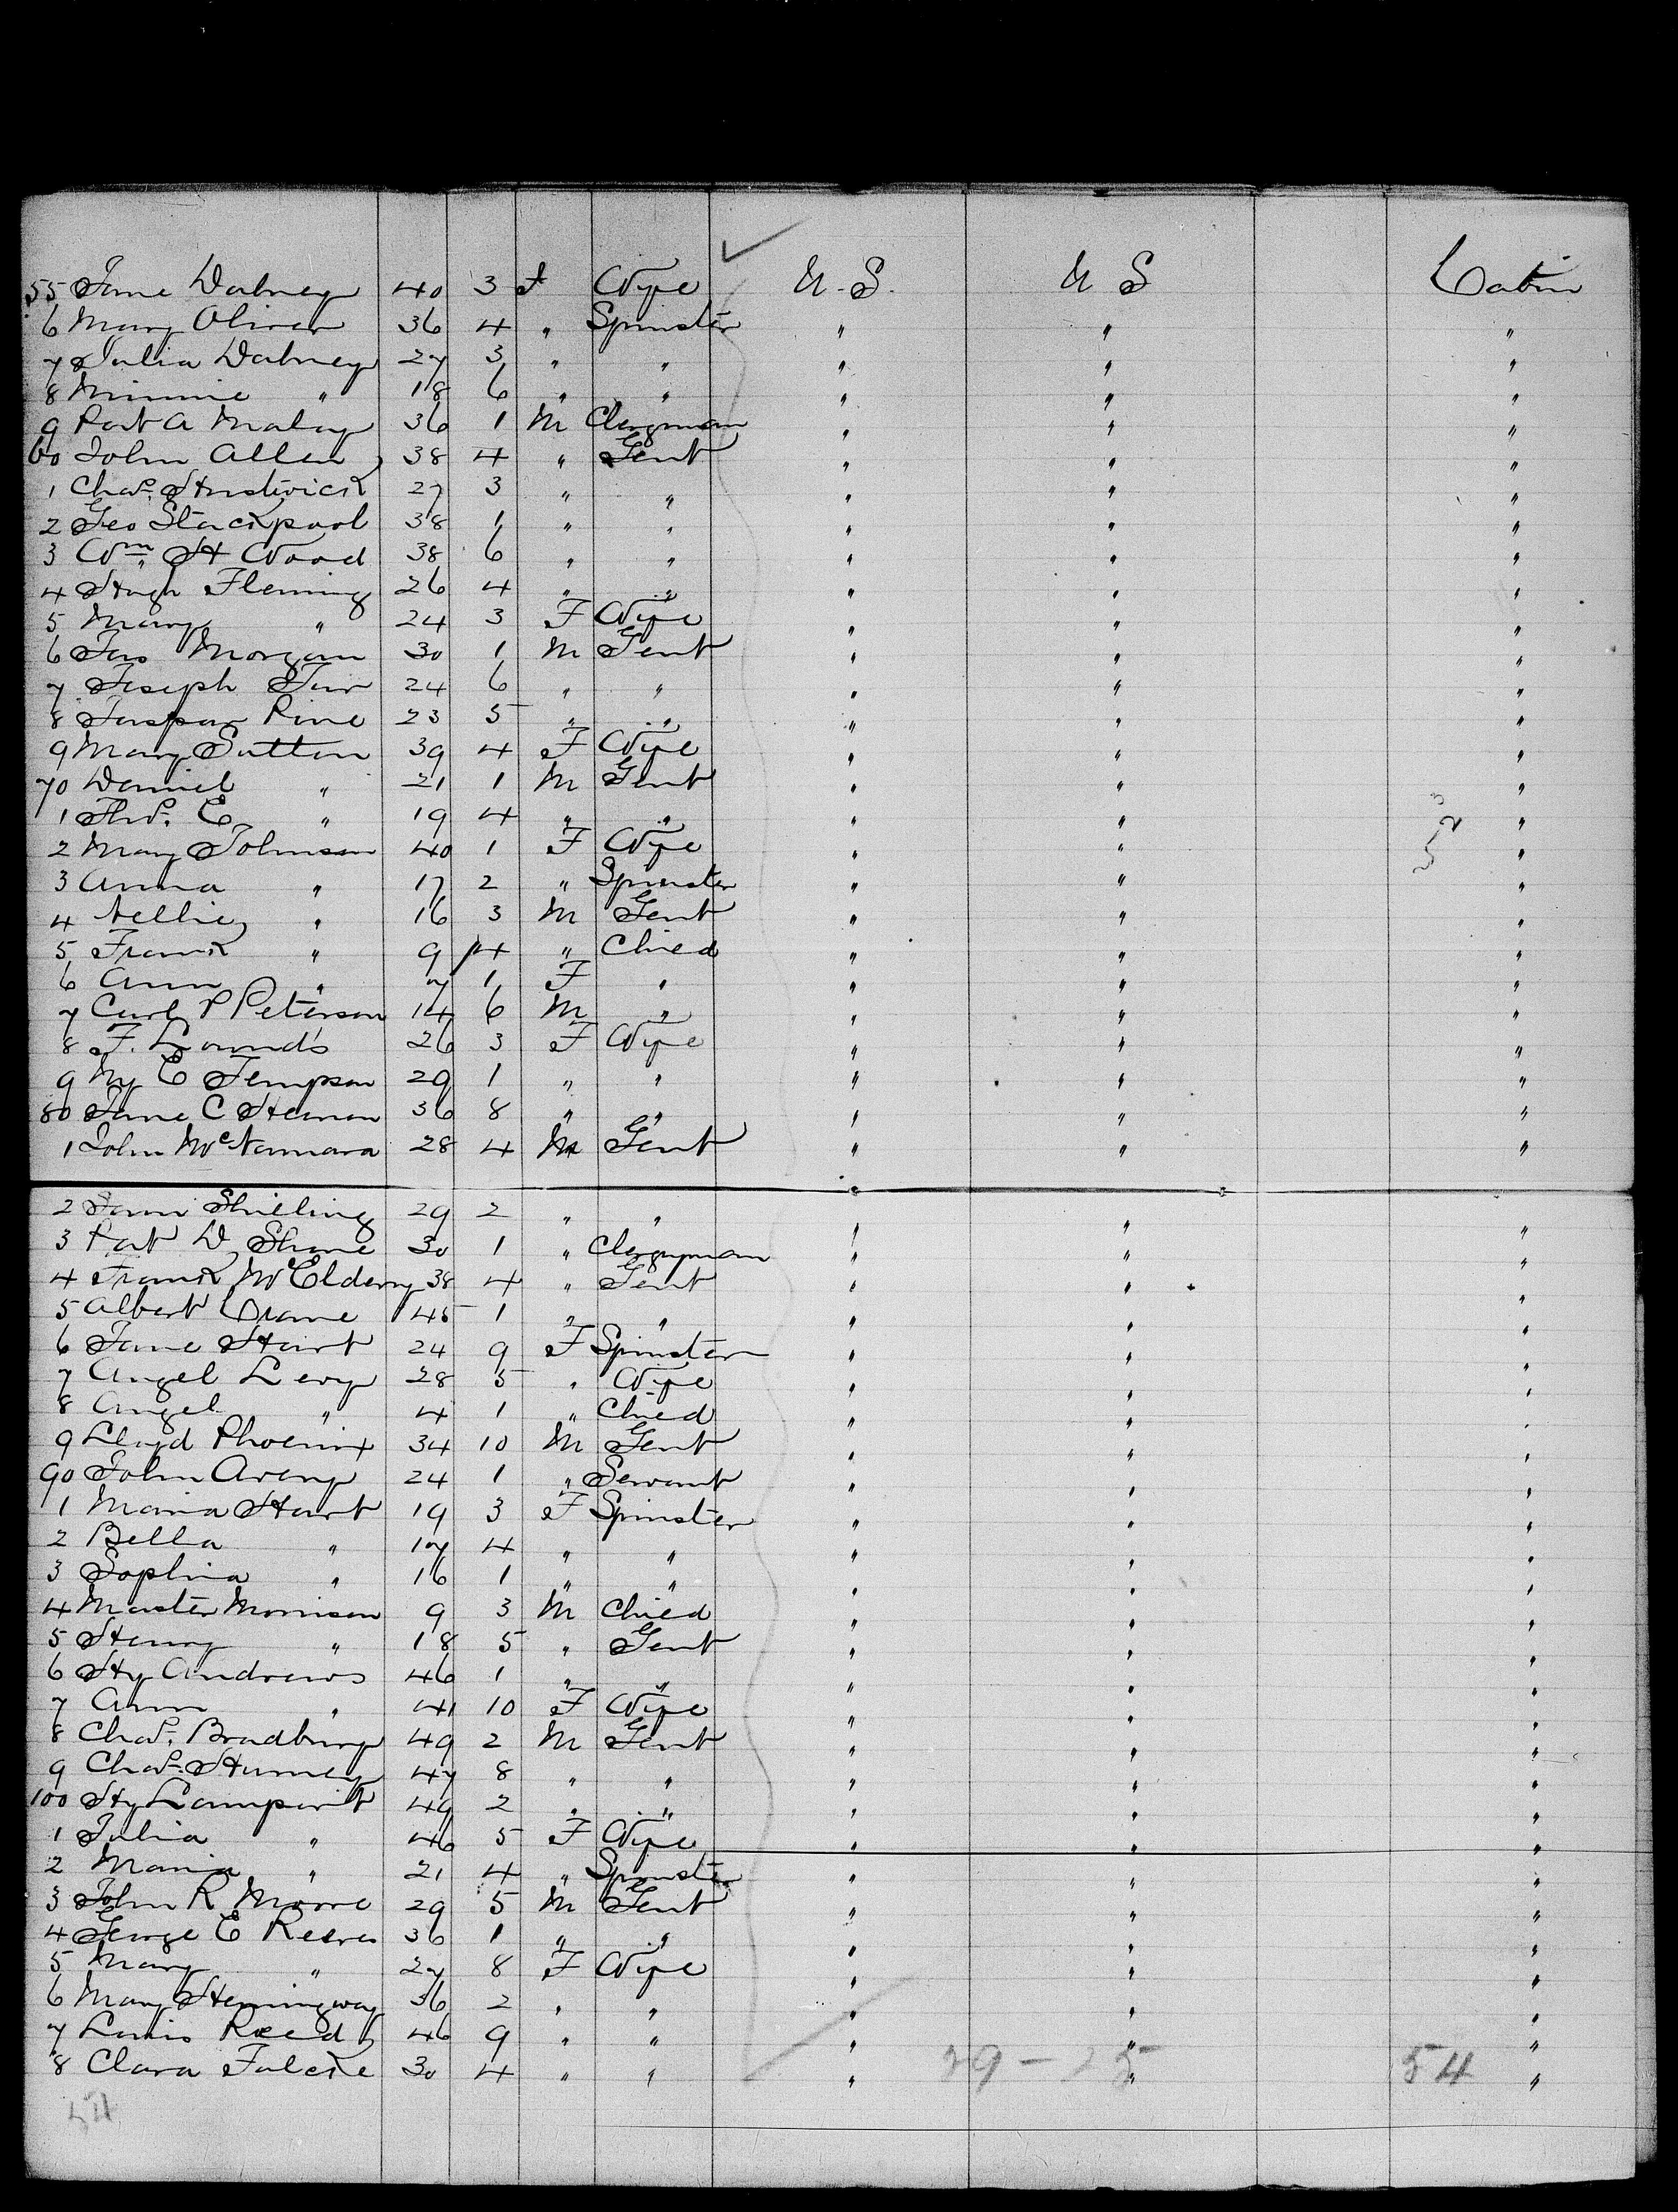 55 Jane Dabney 40 3 F Wife U.S. U S Cabin
6 Mary Oliver 36 4 " Spinster " " "
7 Julia Dabney 27 3 " " " " "
8 Minnie " 18 6 " " " " "
9 Robt A Maloy 36 1 M Clergman " " "
60 John Allen 38 4 " Gent " " "
1 Chas. 27 3 " " " " "
2 Geo Stackpool 38 1 " " " " "
3 Wm H Wood 38 6 " " " " "
4 Hugh Fleming 26 4 " " " " "
5 Mary " 24 3 F Wife " " "
6 Jas Morgan 30 1 M Gent " " "
7 Joseph 24 6 " " " " "
8 Jaspar Rine 23 5 " " " " "
9 Mary Sutton 39 4 F Wife " " "
70 Daniel " 21 1 M Gent " " "
1 Thos. E " 19 4 " " " " "
2 Mary Johnson 40 1 F Wife " " "
3 Anna " 17 2 " Spinster " " "
4 Nellie " 16 3 M Gent " " "
5 Frank " 9 4 " Child " " "
6 Ann " 7 1 F " " " "
7 Carl P Peterson 14 6 M " " " "
8 F. Lounds 26 3 F Wife " " "
9 Hy E Jempson 29 1 " " " " "
80 Jane C Heaman 36 8 " " " " "
1 John McNamara 28 4 M Gent " " "
2 Shieling 29 2 " " " " "
3 Robt W Shane 30 1 " Clergyman " " "
4 Frank McElderry 38 4 " Gent " " "
5 Albert Crane 45 1 " " " " "
6 Jane Hart 24 9 F Spinster " " "
7 Angel Levy 28 5 " Wife " " "
8 Angel " 4 1 " Child " " "
9 Lloyd Phoenix 34 10 M Gent " " "
90 John Avery 24 1 " Servant " " "
1 Maria Hart 19 3 F Spinster " " "
2 Bella " 17 4 " " " " "
3 Sophia " 16 1 " " " " "
4 Master Morrison 9 3 M Child " " "
5 Henry " 18 5 " Gent " " "
6 Hy Andrews 46 1 " " " " "
7 Ann " 41 10 F Wife " " "
8 Chas. Bradbury 49 2 M Gent " " "
9 Chas. Hurney 47 8 " " " " "
100 Hy Lamport 49 2 " " " " "
1 Julia " 46 5 F Wife " " "
2 Maria " 21 4 " Spinster " " "
3 John R Moore 29 5 M Gent " " "
4 George E Reeves 36 1 " " " " "
5 Mary " 27 8 F Wife " " "
6 Mary Hemingway 36 2 " " " " "
7 Louis Reed 46 9 " " " " "
8 Clara Falcke 30 4 " " " " "
29 - 25 54
54